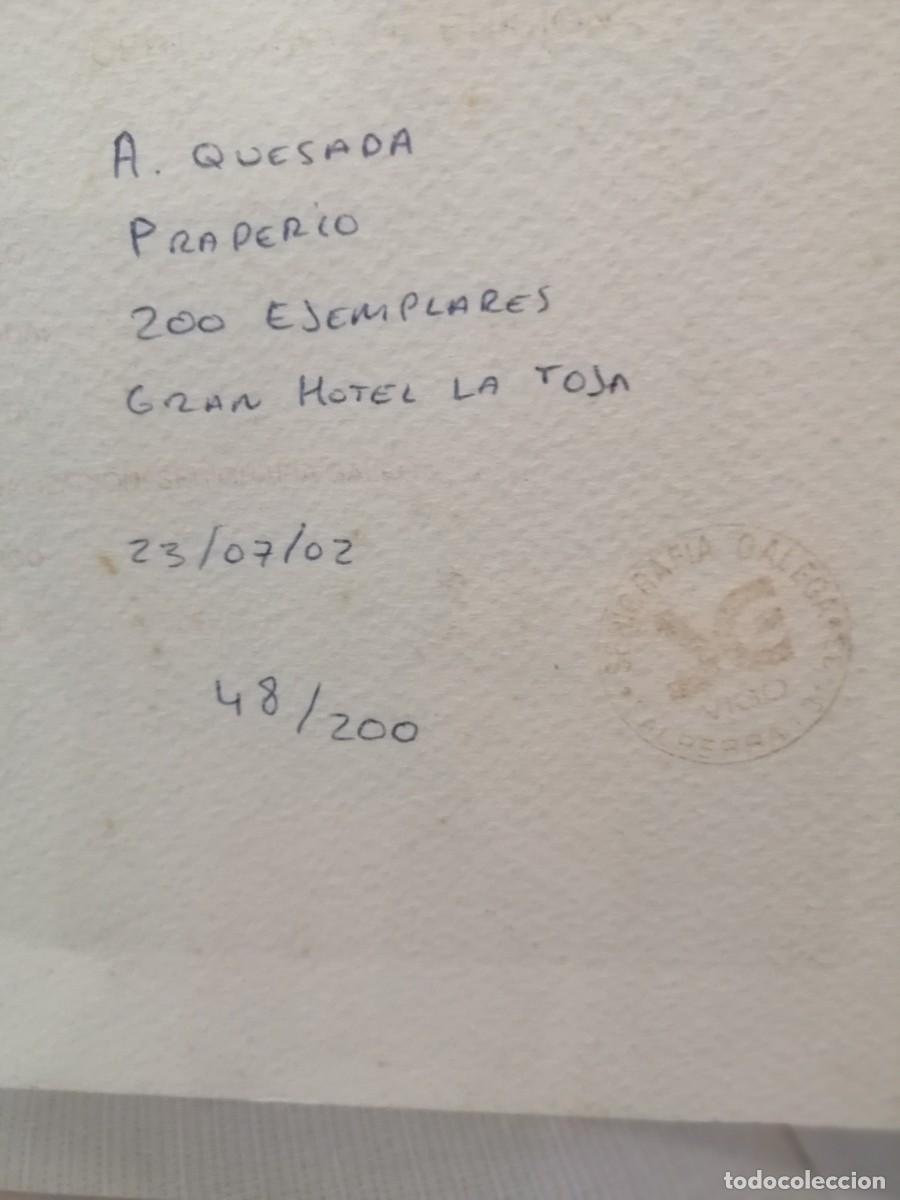 A. QUESADA
PRAPERIO
200 EJEMPLARES
GRAN HOTEL LA TOJA
23/07/02
48/200
GALEGA
VIGO
todocoleccion